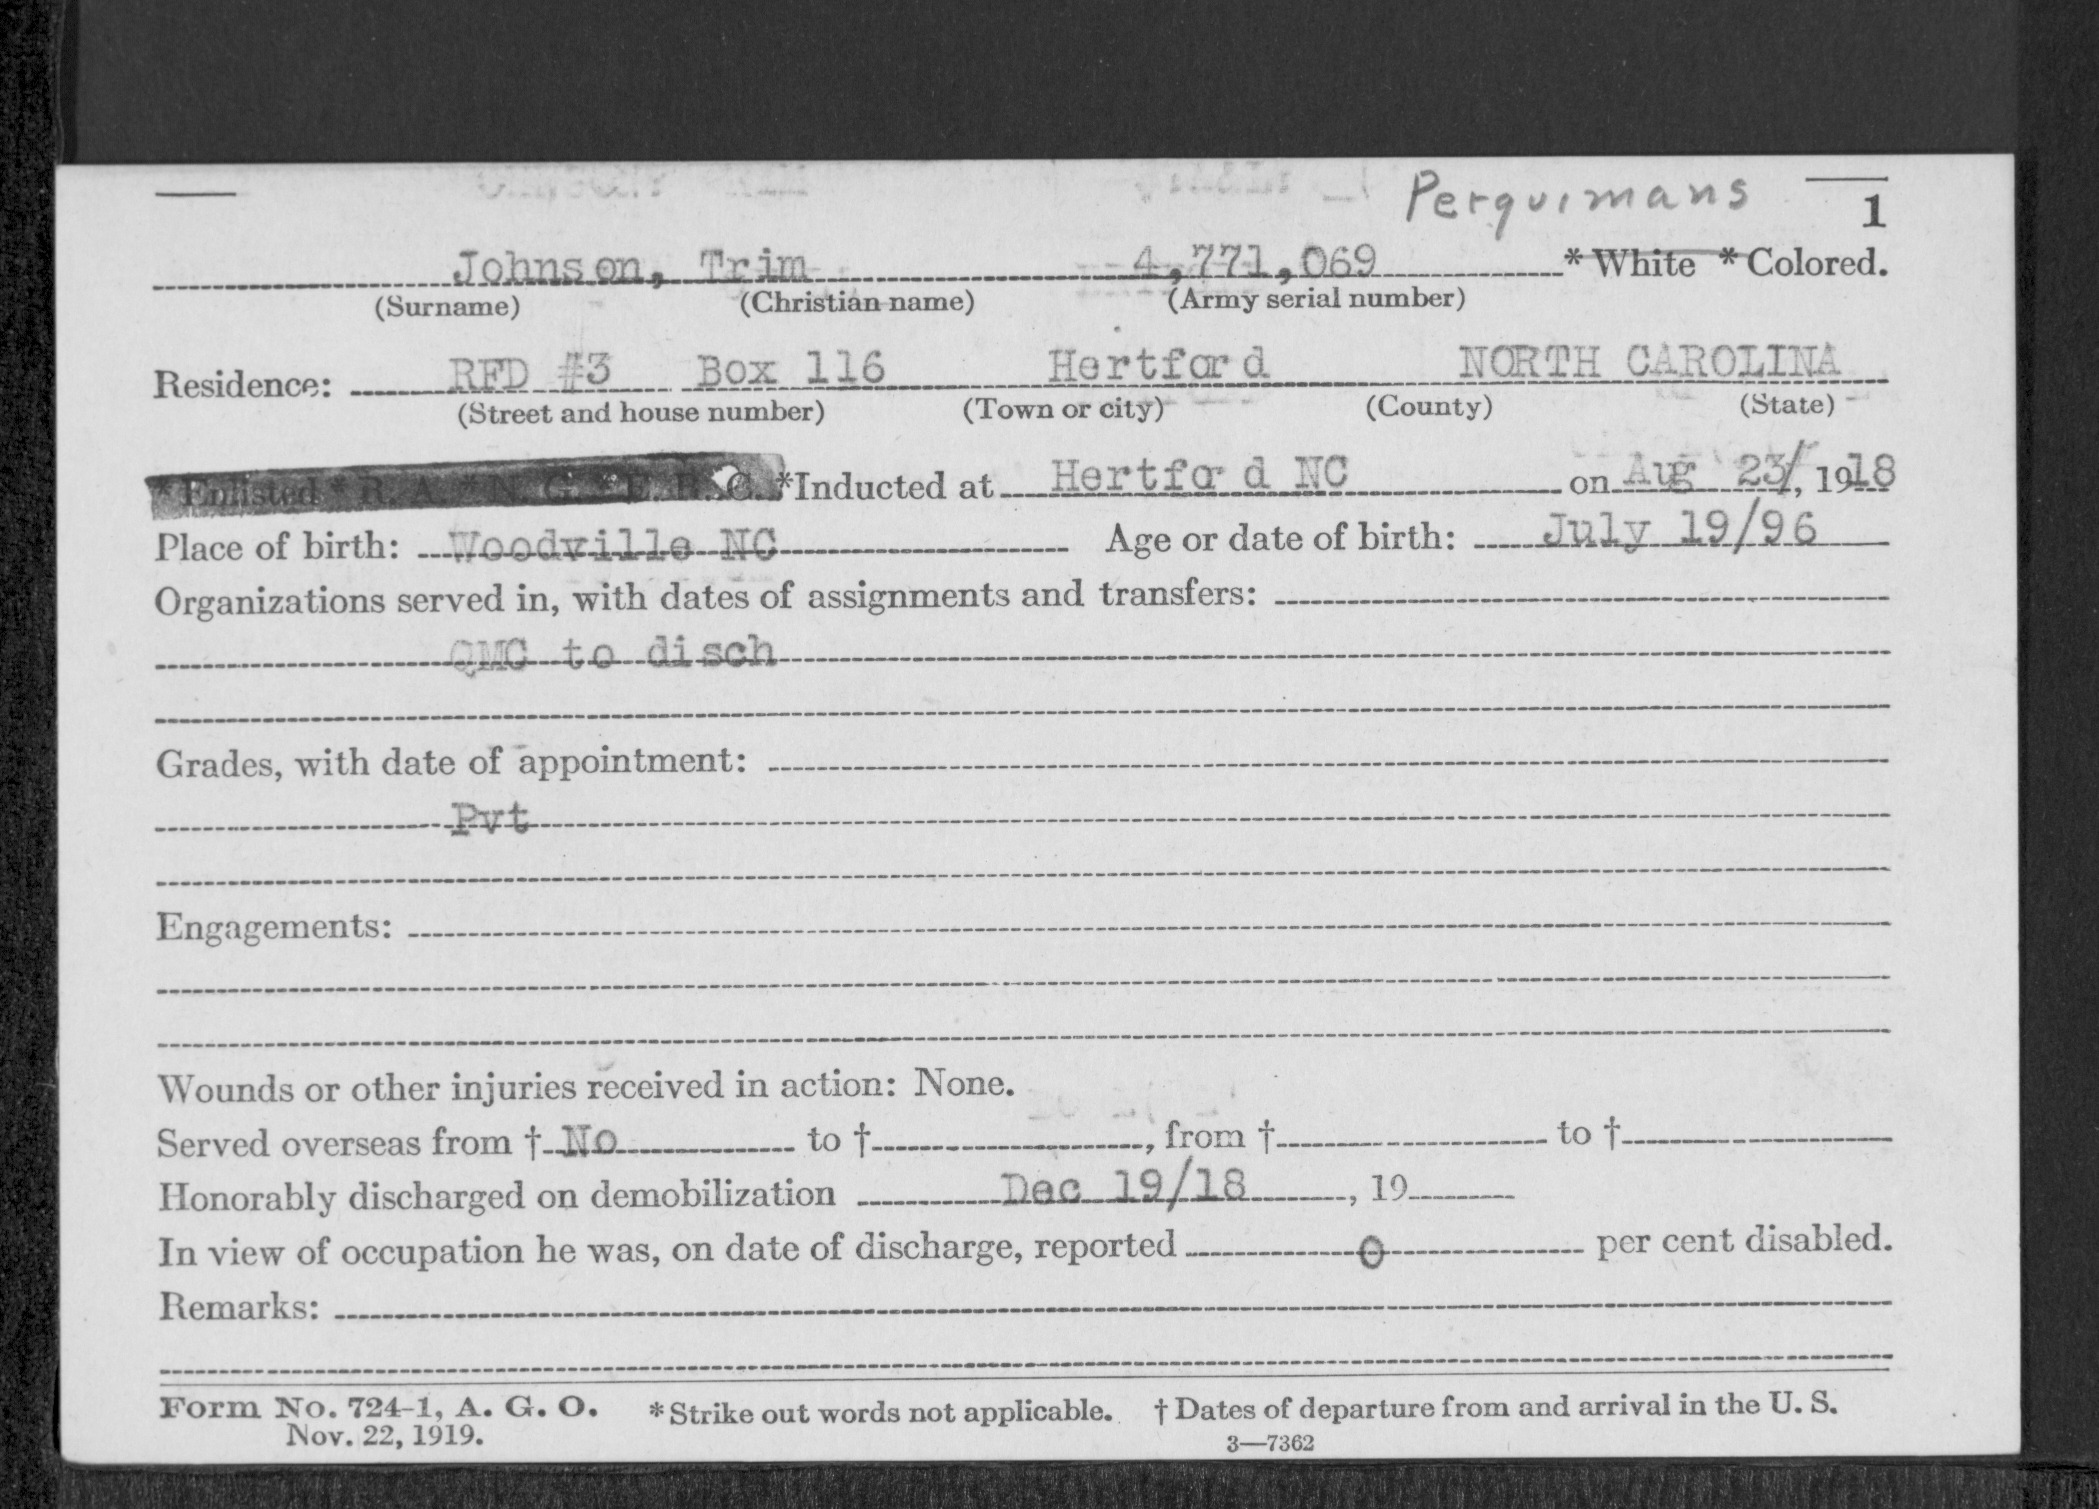 Perquimans 1
Johnson, Trim 4,771,069 * White * Colored.
(Surname) (Christian name) (Army serial number)
Residence: RFD #3 Box 116 Hertford NORTH CAROLINA
(Street and house number) (Town or city) (County) (State)
* Enlisted * R. A. * N. G. * E. R. C. *Inducted at Hertford NC on Aug 23/, 1918
Place of birth: Woodville NC Age or date of birth: July 19/96
Organizations served in, with dates of assignments and transfers:
QMC to disch
Grades, with date of appointment:
Pvt
Engagements:
Wounds or other injuries received in action: None.
Served overseas from † No to †, from † to †
Honorably discharged on demobilization Dec 19/18, 19
In view of occupation he was, on date of discharge, reported 0 per cent disabled.
Remarks:
Form No. 724-1, A. G. O. *Strike out words not applicable. † Dates of departure from and arrival in the U. S.
Nov. 22, 1919. 3—7362